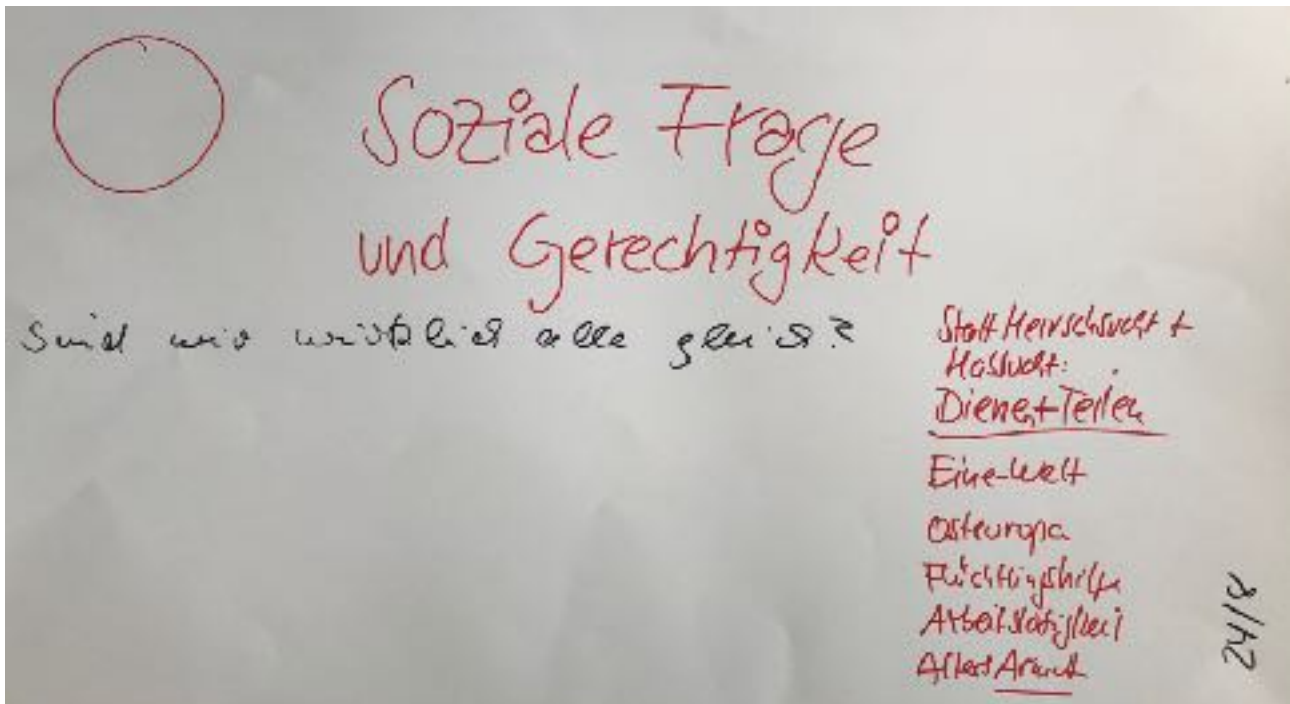 Soziale Frage
und Gerechtigkeit
Sind wir wirklich alle gleich?
Statt Herrschsucht +
Habsucht:
Dienen + Teilen
Eine-Welt
Osteuropa
Flüchtlingshilfe
Alters Armut
24/8